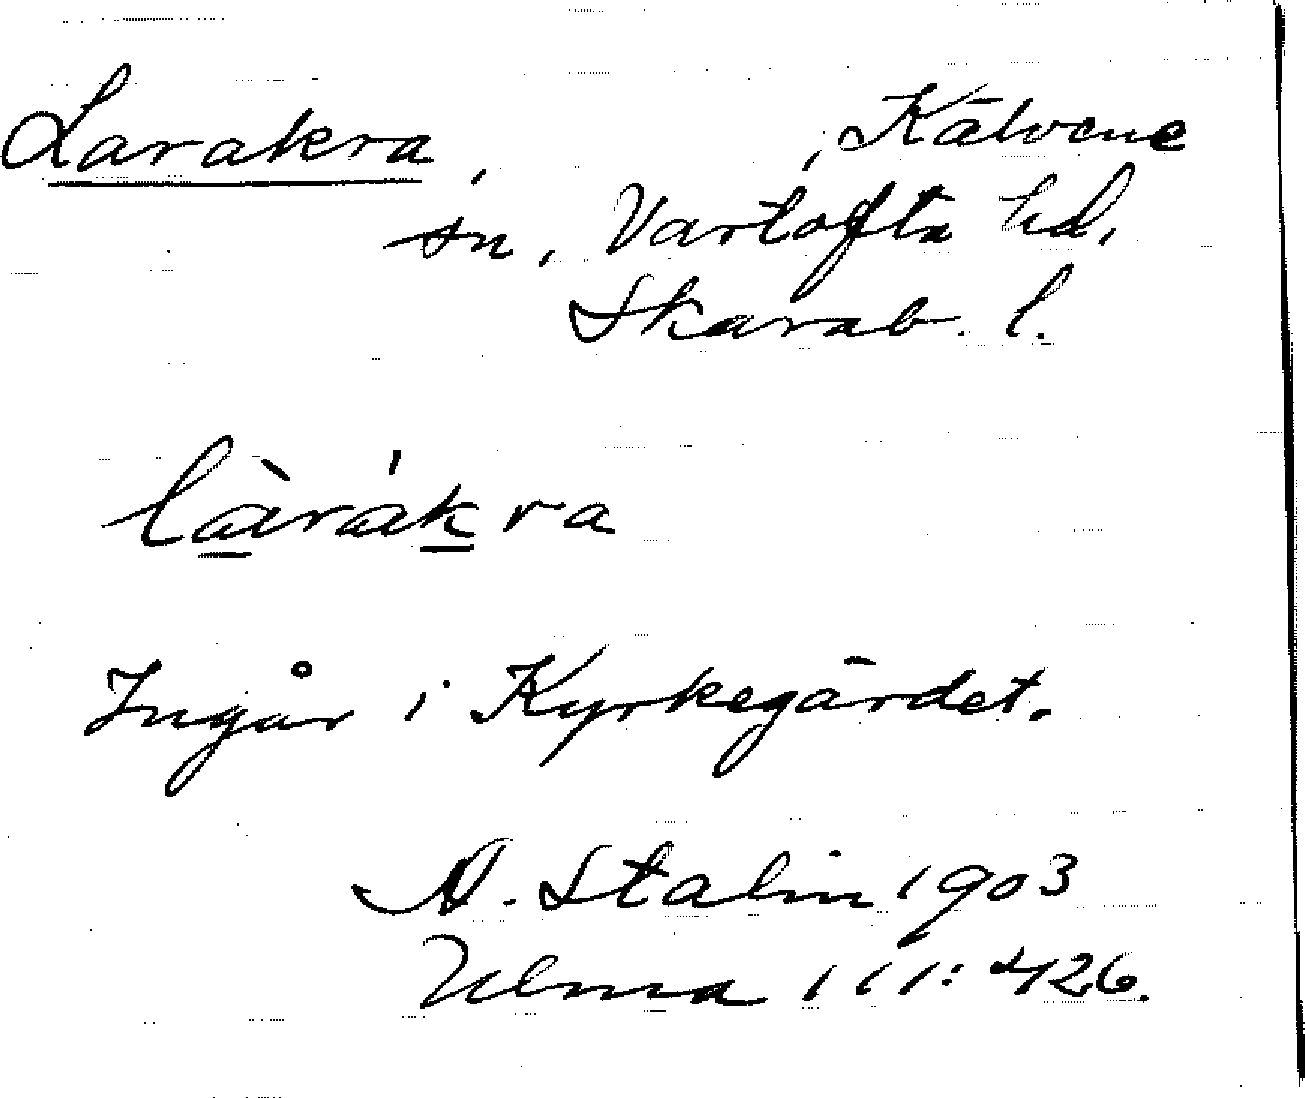 Larakra, , Kälvene
sn, Vartofta hd,
Skarab. l.
làrákra
Ingår i Kyrkegärdet.
N. Stalin 1903
Ulma 111:426.